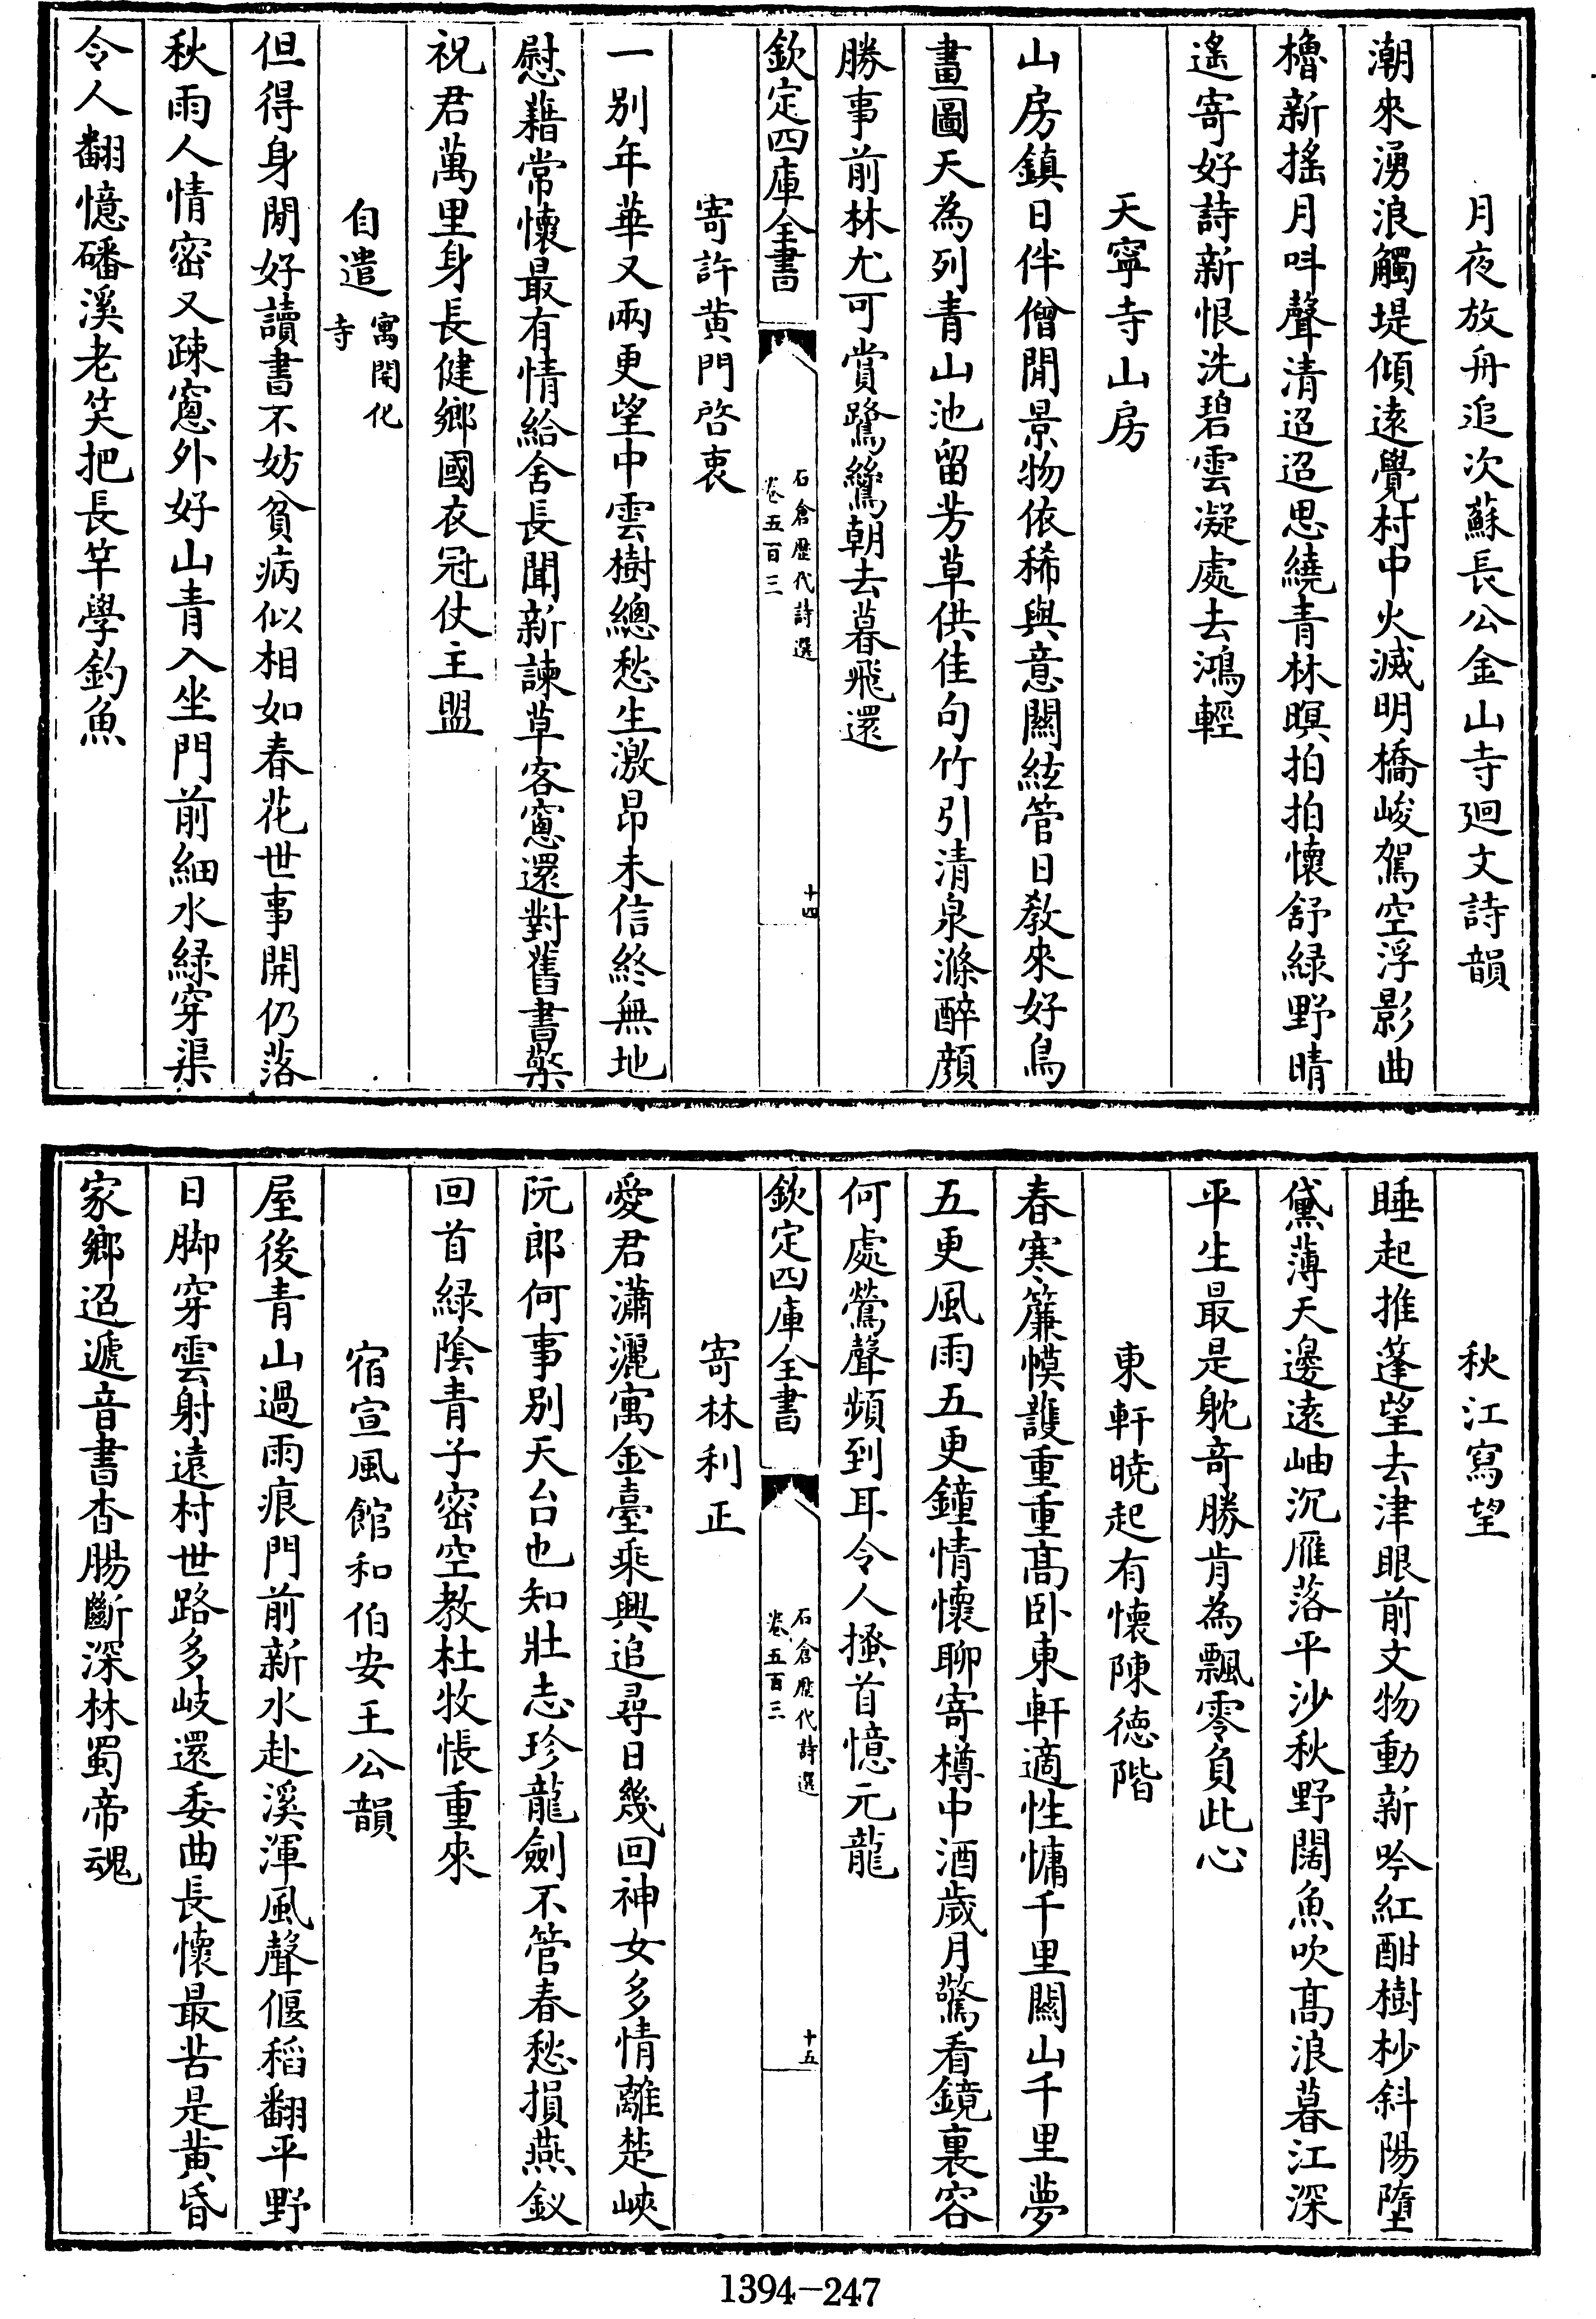 月夜放舟追次蘇長公金山寺廻文詩韻
潮來湧浪觸堤傾遠覺村中火滅明橋峻駕空浮影曲
櫓新搖月呌聲清迢迢思繞青林暝拍拍懷舒緑野晴
遙寄好詩新恨洗碧雲凝處去鴻輕
天寧寺山房
山房鎮日伴僧閒景物依稀與意闗絃管日教來好鳥
畫圖天為列青山池留芳草供佳句竹引清泉滌醉顔
勝事前林尤可賞鷺鷥朝去暮飛還
欽定四庫全書
石倉歷代詩選
卷五百三
十四
寄許黄門啓衷
一别年華又兩更望中雲樹總愁生激昂未信終無地
慰藉常懷最有情給舍長聞新諫草客窻還對舊書檠
祝君萬里身長健鄉國衣冠仗主盟
自遣寓開化
寺
但得身閒好讀書不妨貧病似相如春花世事開仍落
秋雨人情密又疎窻外好山青入坐門前細水緑穿渠
令人翻憶磻溪老笑把長竿學釣魚
秋江寫望
睡起推篷望去津眼前文物動新吟紅酣樹杪斜陽墮
黛薄天邊遠岫沉雁落平沙秋野闊魚吹髙浪暮江深
平生最是躭竒勝肯為飄零負此心
東軒曉起有懷陳徳階
春寒簾幙護重重髙卧東軒適性慵千里闗山千里夢
五更風雨五更鐘情懷聊寄樽中酒歲月驚看鏡裏容
何處鶯聲頻到耳令人搔首憶元龍
欽定四庫全書
石倉歷代詩選
卷五百三
十五
寄林利正
愛君瀟灑寓金臺乘興追尋日幾回神女多情離楚峽
阮郎何事别天台也知壯志珍龍劍不管春愁損燕釵
回首緑陰青子密空教杜牧悵重來
宿宣風館和伯安王公韻
屋後青山過雨痕門前新水赴溪渾風聲偃稻翻平野
日脚穿雲射遠村世路多岐還委曲長懷最苦是黄昏
家鄉迢遞音書杳腸斷深林蜀帝魂
1394-247